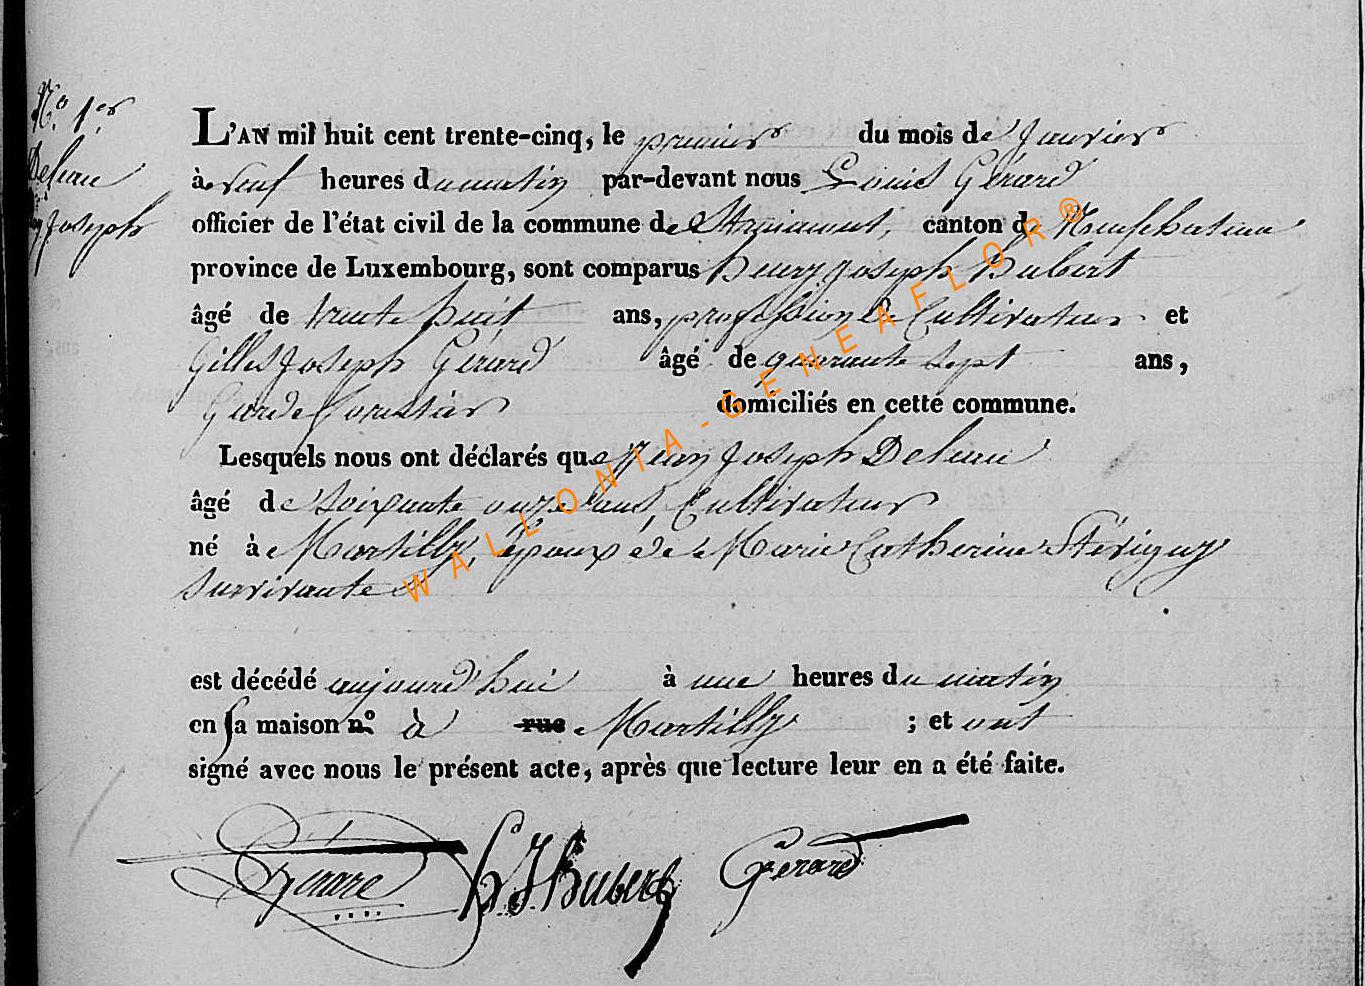 N.o 1er
Deleau
Joseph
L'AN mil huit cent trente-cinq, le premier du mois de Janvier
à neuf heures du matin par-devant nous Louis Gérard
officier de l'état civil de la commune de Straimont, canton de Neufchateau
province de Luxembourg, sont comparus henry joseph hubert
âgé de trente huit ans, profession de Cultivateur et
Gilles Joseph Gérard âgé de quarante sept ans,
Garde forestier domiciliés en cette commune.
Lesquels nous ont déclarés que Jean Joseph Deleau
âgé de soixante onze ans, Cultivateur
né à Martilly, époux de Marie Catherine Stévigny
survivante
est décédé aujourd'hui à une heures du matin
en sa maison n.o à rue Martilly ; et ont
signé avec nous le présent acte, après que lecture leur en a été faite.
Gérard H. J. Hubert Gérard
WALLONIA-GENEAFLOR®